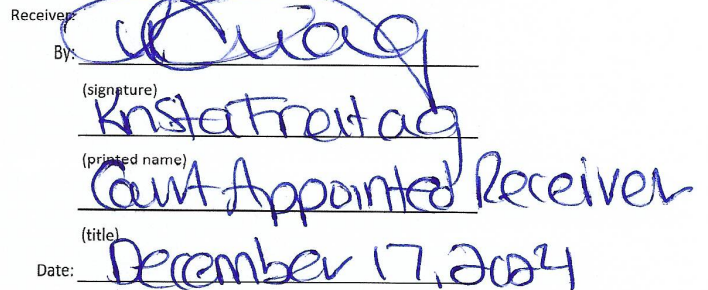 Receiver:
By:
(signature)
Krista Freitag
(printed name)
Court Appointed Receiver
(title)
Date: December 17, 2024